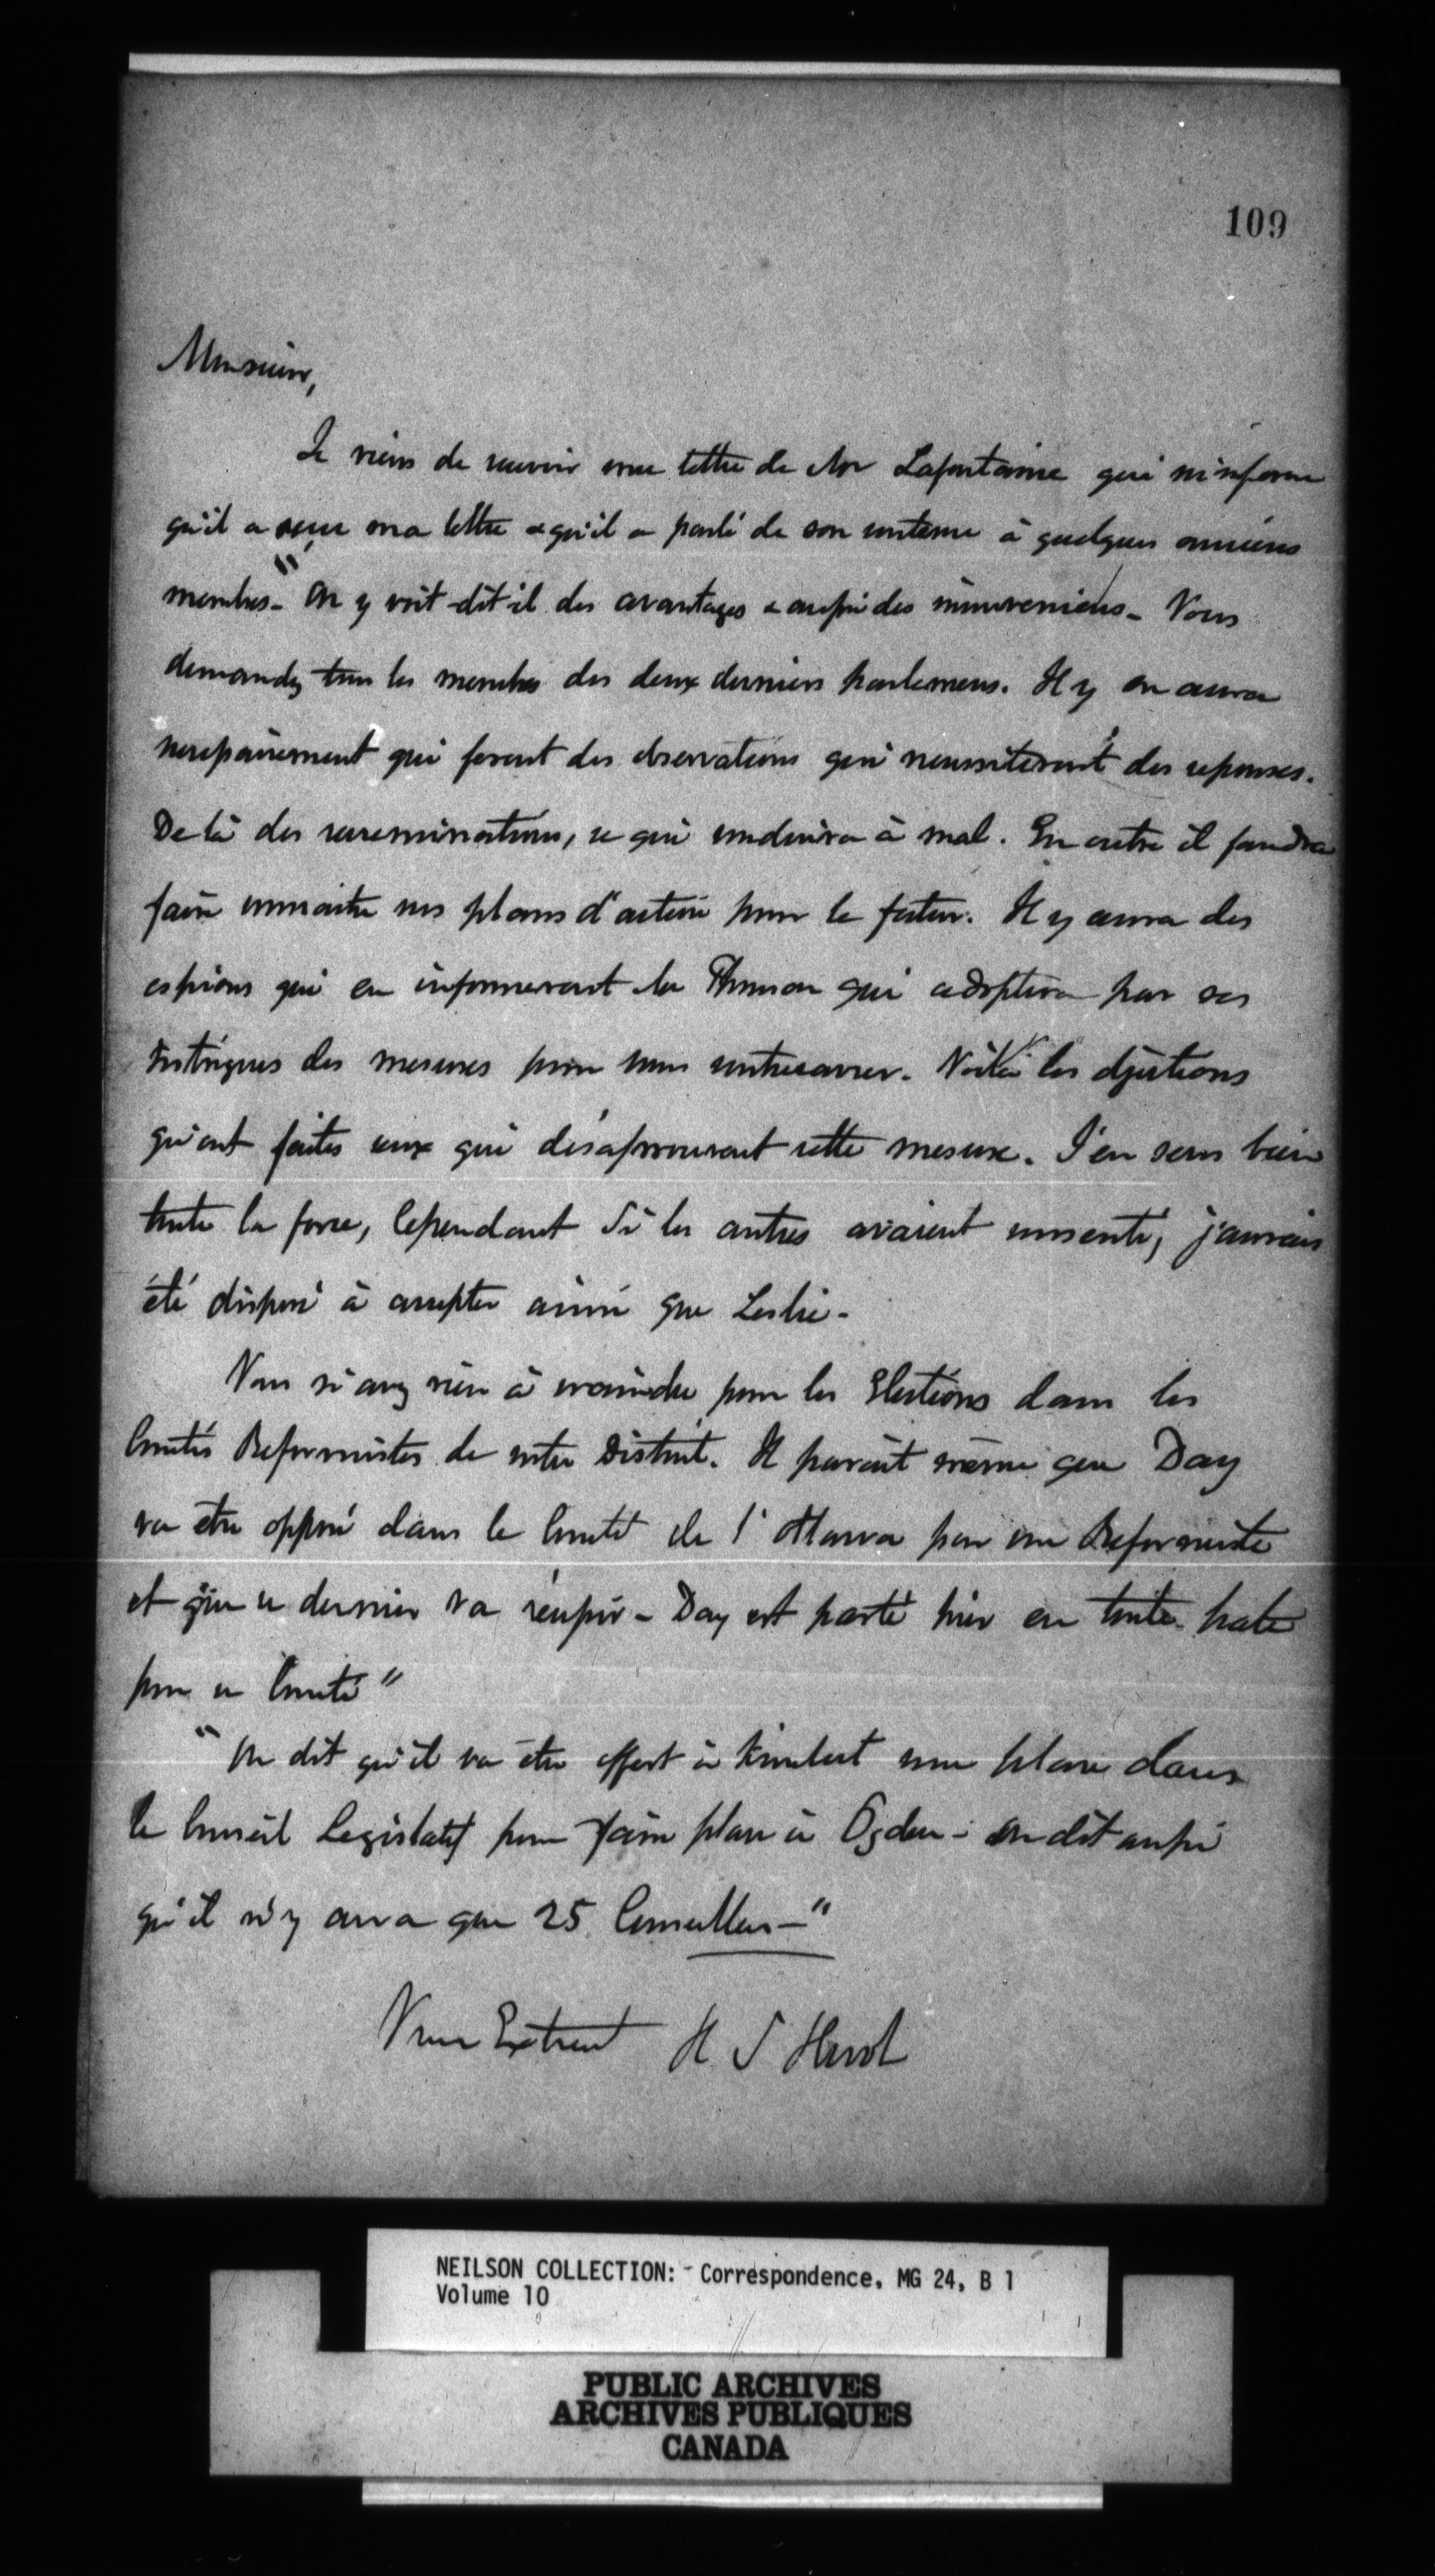 109
Monsieur,
Je viens de recevoir une lettre de Mr Lafontaine qui m'informe
qu'il a reçu ma lettre & qu'il a parlé de son contenu à quelques anciens
membres - "On y voit dit-il des avantages & aussi des inconveniens - Vous
demandez tous les membres des deux derniers parlemens. Il y en aura
necessairement qui feront des observations qui necessiteront des reponses.
De là des recriminations, ce qui conduira à mal. En outre il faudra
faire connaitre nos plans d'action pour le futur. Il y aura des
espions qui en informeront la Thomson qui adoptera par ses
intrigues des mesures pour nous contrecarrer. Voilà les objections
qu'ont faites ceux qui désaprouvent cette mesure. J'en sens bien
toute la force, Cependant si les autres avaient consenti, j'aurais
été disposé à accepter ainsi que Leslie -
Vous n'avez rien à craindre pour les Elections dans les
Comtés Reformistes de notre District. Il parait même que Day
va être opposé dans le Comté de l'Ottawa par un Reformiste
et que ce dernier va réussir - Day est parti hier en toute hate
pour ce Comté"
"On dit qu'il va être offert à Kimbert une place dans
le Conseil Legislatif pour faire place à Ogden - On dit aussi
qu'il n'y aura que 25 Conseillers -"
Vrai Extrait H S Huot
NEILSON COLLECTION: - Correspondence, MG 24, B 1
Volume 10
PUBLIC ARCHIVES
ARCHIVES PUBLIQUES
CANADA